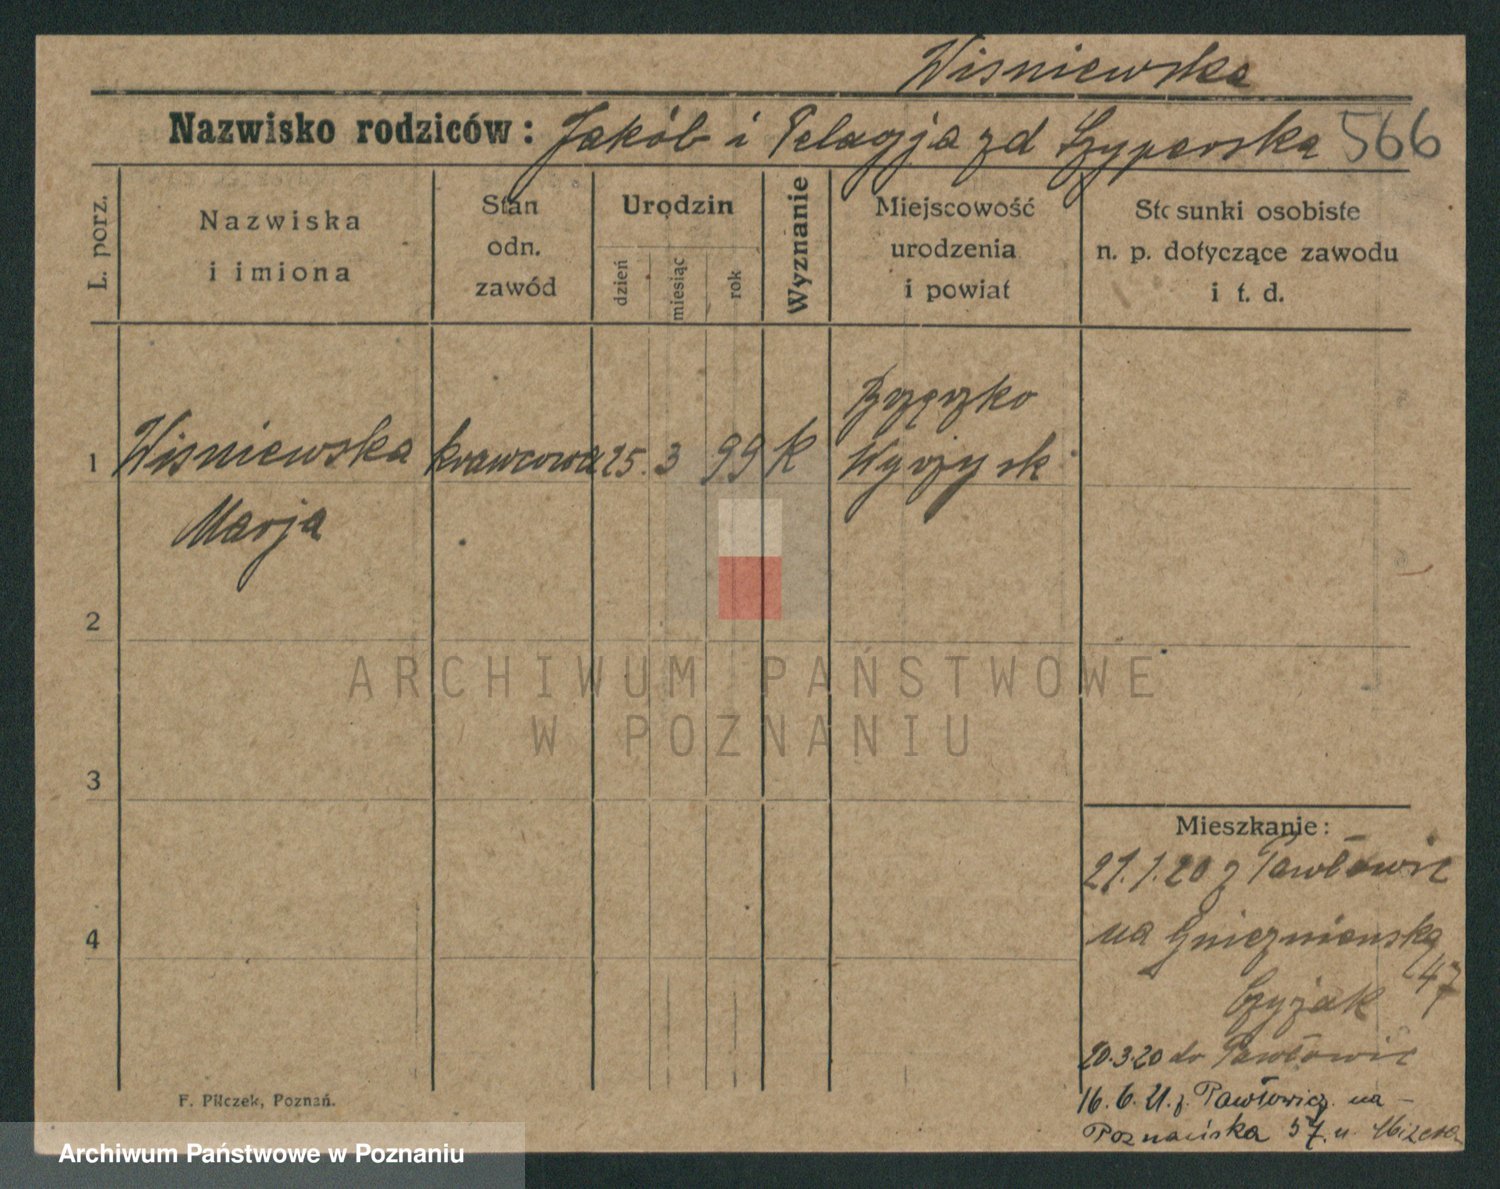 Wisniewska
Nazwisko rodziców: Jakób i Pelagja zd Szyperska 566
L. porz.
Nazwiska
i imiona
Stan
odn.
zawód
Urodzin
dzień
miesiąc
rok
Wyznanie
Miejscowość
urodzenia
i powiat
Stosunki osobiste
n. p. dotyczące zawodu
i t. d.
1 Wisniewska krawcowa 25. 3 99 K
Wyrzysk
Marja
2
3
4
Mieszkanie:
27.1.20 z Pawłowic
na Gnieznienską
47
Czyżak
20.3.20 do Pawłowic
16.6.21. z. Pawłowic na -
Poznańska 57. u.
F. Pilczek, Poznań.
ARCHIWUM PAŃSTWOWE
W POZNANIU
Archiwum Państwowe w Poznaniu